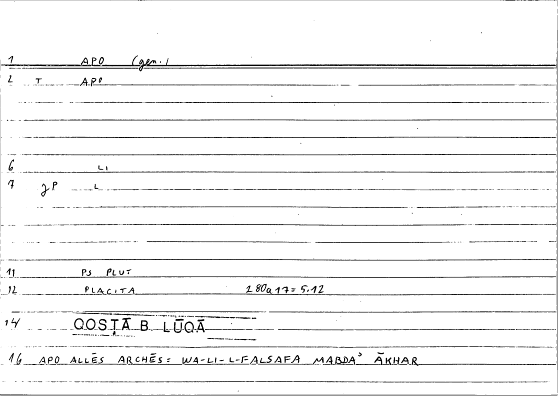 1 APO (gen.)
2 T APO
6 LI
7 JP L
11 PS PLUT
12 PLACITA 280a17=5.12
14 QOSṬĀ B. LŪQĀ
16 APO ALLĒS ARCHĒS= WA-LI-L-FALSAFA MABDA' ĀKHAR